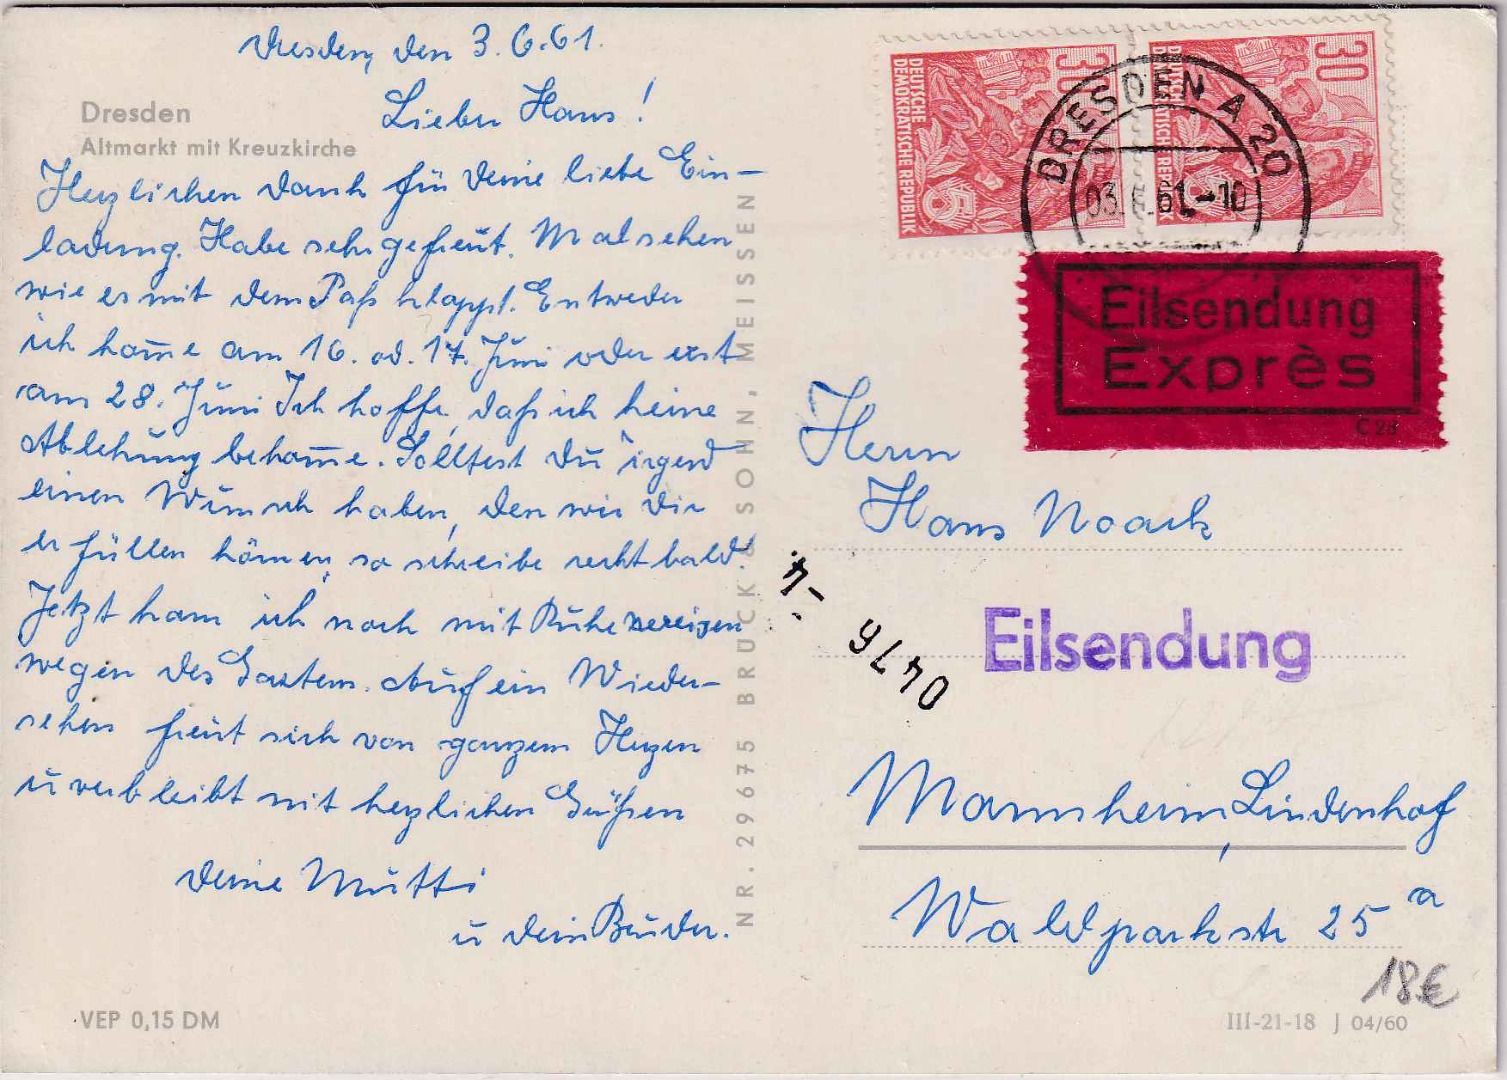 Dresden, den 3.6.61.
Dresden
Altmarkt mit Kreuzkirche
Lieber Hans!
Herzlichen Dank für Deine liebe Ein-
ladung. Habe sehr gefreut. Mal sehen
wie es mit dem Paß klappt. Entweder
ich kom̄e am 16. od. 17. Juni oder erst
am 28. Juni Ich hoffe, daß ich keine
Ablehnung bekom̄e. Solltest Du irgend
einen Wunsch haben, den wir Dir
erfüllen können, so schreibe recht bald!
Jetzt kann ich noch mit Ruhe verreisen
wegen des Gartens. Auf ein Wieder-
sehen freut sich von ganzem Herzen
u verbleibt mit herzlichen Grüßen
Deine Mutti
u dein Bruder.
VEP 0,15 DM
NR. 29675 BRUCK & SOHN, MEISSEN
30
DEUTSCHE
DEMOKRATISCHE REPUBLIK
30
DEUTSCHE
DEMOKRATISCHE REPUBLIK
DRESDEN A 20
03.6.61.-10
Eilsendung
Exprès
C 28
Herrn
Hans Noack
-4.
0476
Eilsendung
Mannheim, Lindenhof
Waldparkstr 25 a
18€
III-21-18 J 04/60